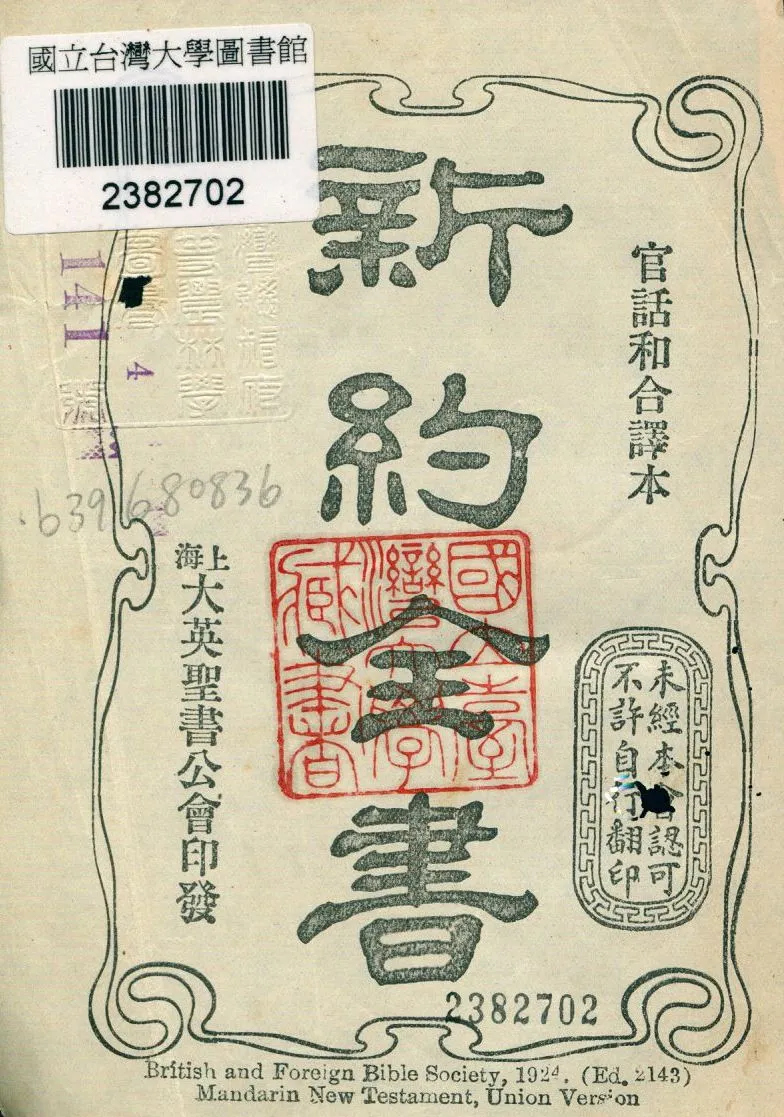 國立台灣大學圖書館
2382702
新約全書
官話和合譯本
未經本會認可
不許自行翻印
上海
大英聖書公會印發
國立臺
灣大學
藏書
141
4
.b39680836
2382702
British and Foreign Bible Society, 1924. (Ed. 2143)
Mandarin New Testament, Union Version